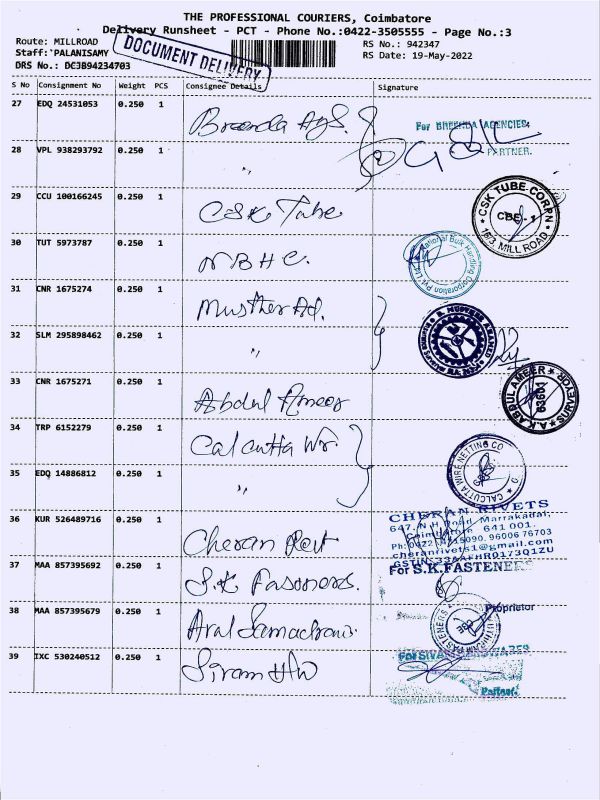 THE PROFESSIONAL COURIERS, Coimbatore
Delivery Runsheet - PCT - Phone No.:0422-3505555 - Page No.:3
Route: MILLROAD
RS No.: 942347
Staff: PALANISAMY
RS Date: 19-May-2022
DRS No.: DCJB94234703
DOCUMENT DELIVERY
S No Consignment No Weight PCS Consignee Details Signature
27 EDQ 24531053 0.250 1 Breenda Ags.
For BREENDA AGENCIES
28 VPL 938293792 0.250 1 "
PARTNER.
29 CCU 100166245 0.250 1 CSK Tube
CSK TUBE CORPN
CBE - 1
16/3, MILL ROAD
30 TUT 5973787 0.250 1 NBHC.
National Bulk Handling Corporation Pvt Ltd
31 CNR 1675274 0.250 1 Musther Ad.
32 SLM 295898462 0.250 1 "
33 CNR 1675271 0.250 1 Abdul Ameer
A.K.ABDUL AMEER
63601
SURVEYOR
34 TRP 6152279 0.250 1 Calcutta Wr.
CALCUTTA WIRE NETTING CO
35 EDQ 14886812 0.250 1 "
36 KUR 526489716 0.250 1 Cheran Revt
CHERAN RIVETS
647, N.H. Road, Marrakadai,
Coimbatore 641 001.
cheranrivets1@gmail.com
37 MAA 857395692 0.250 1 S.K. Fasteners.
For S.K.FASTENERS
38 MAA 857395679 0.250 1
Proprietor
39 IXC 530240512 0.250 1 Sivam H/W
Partner.